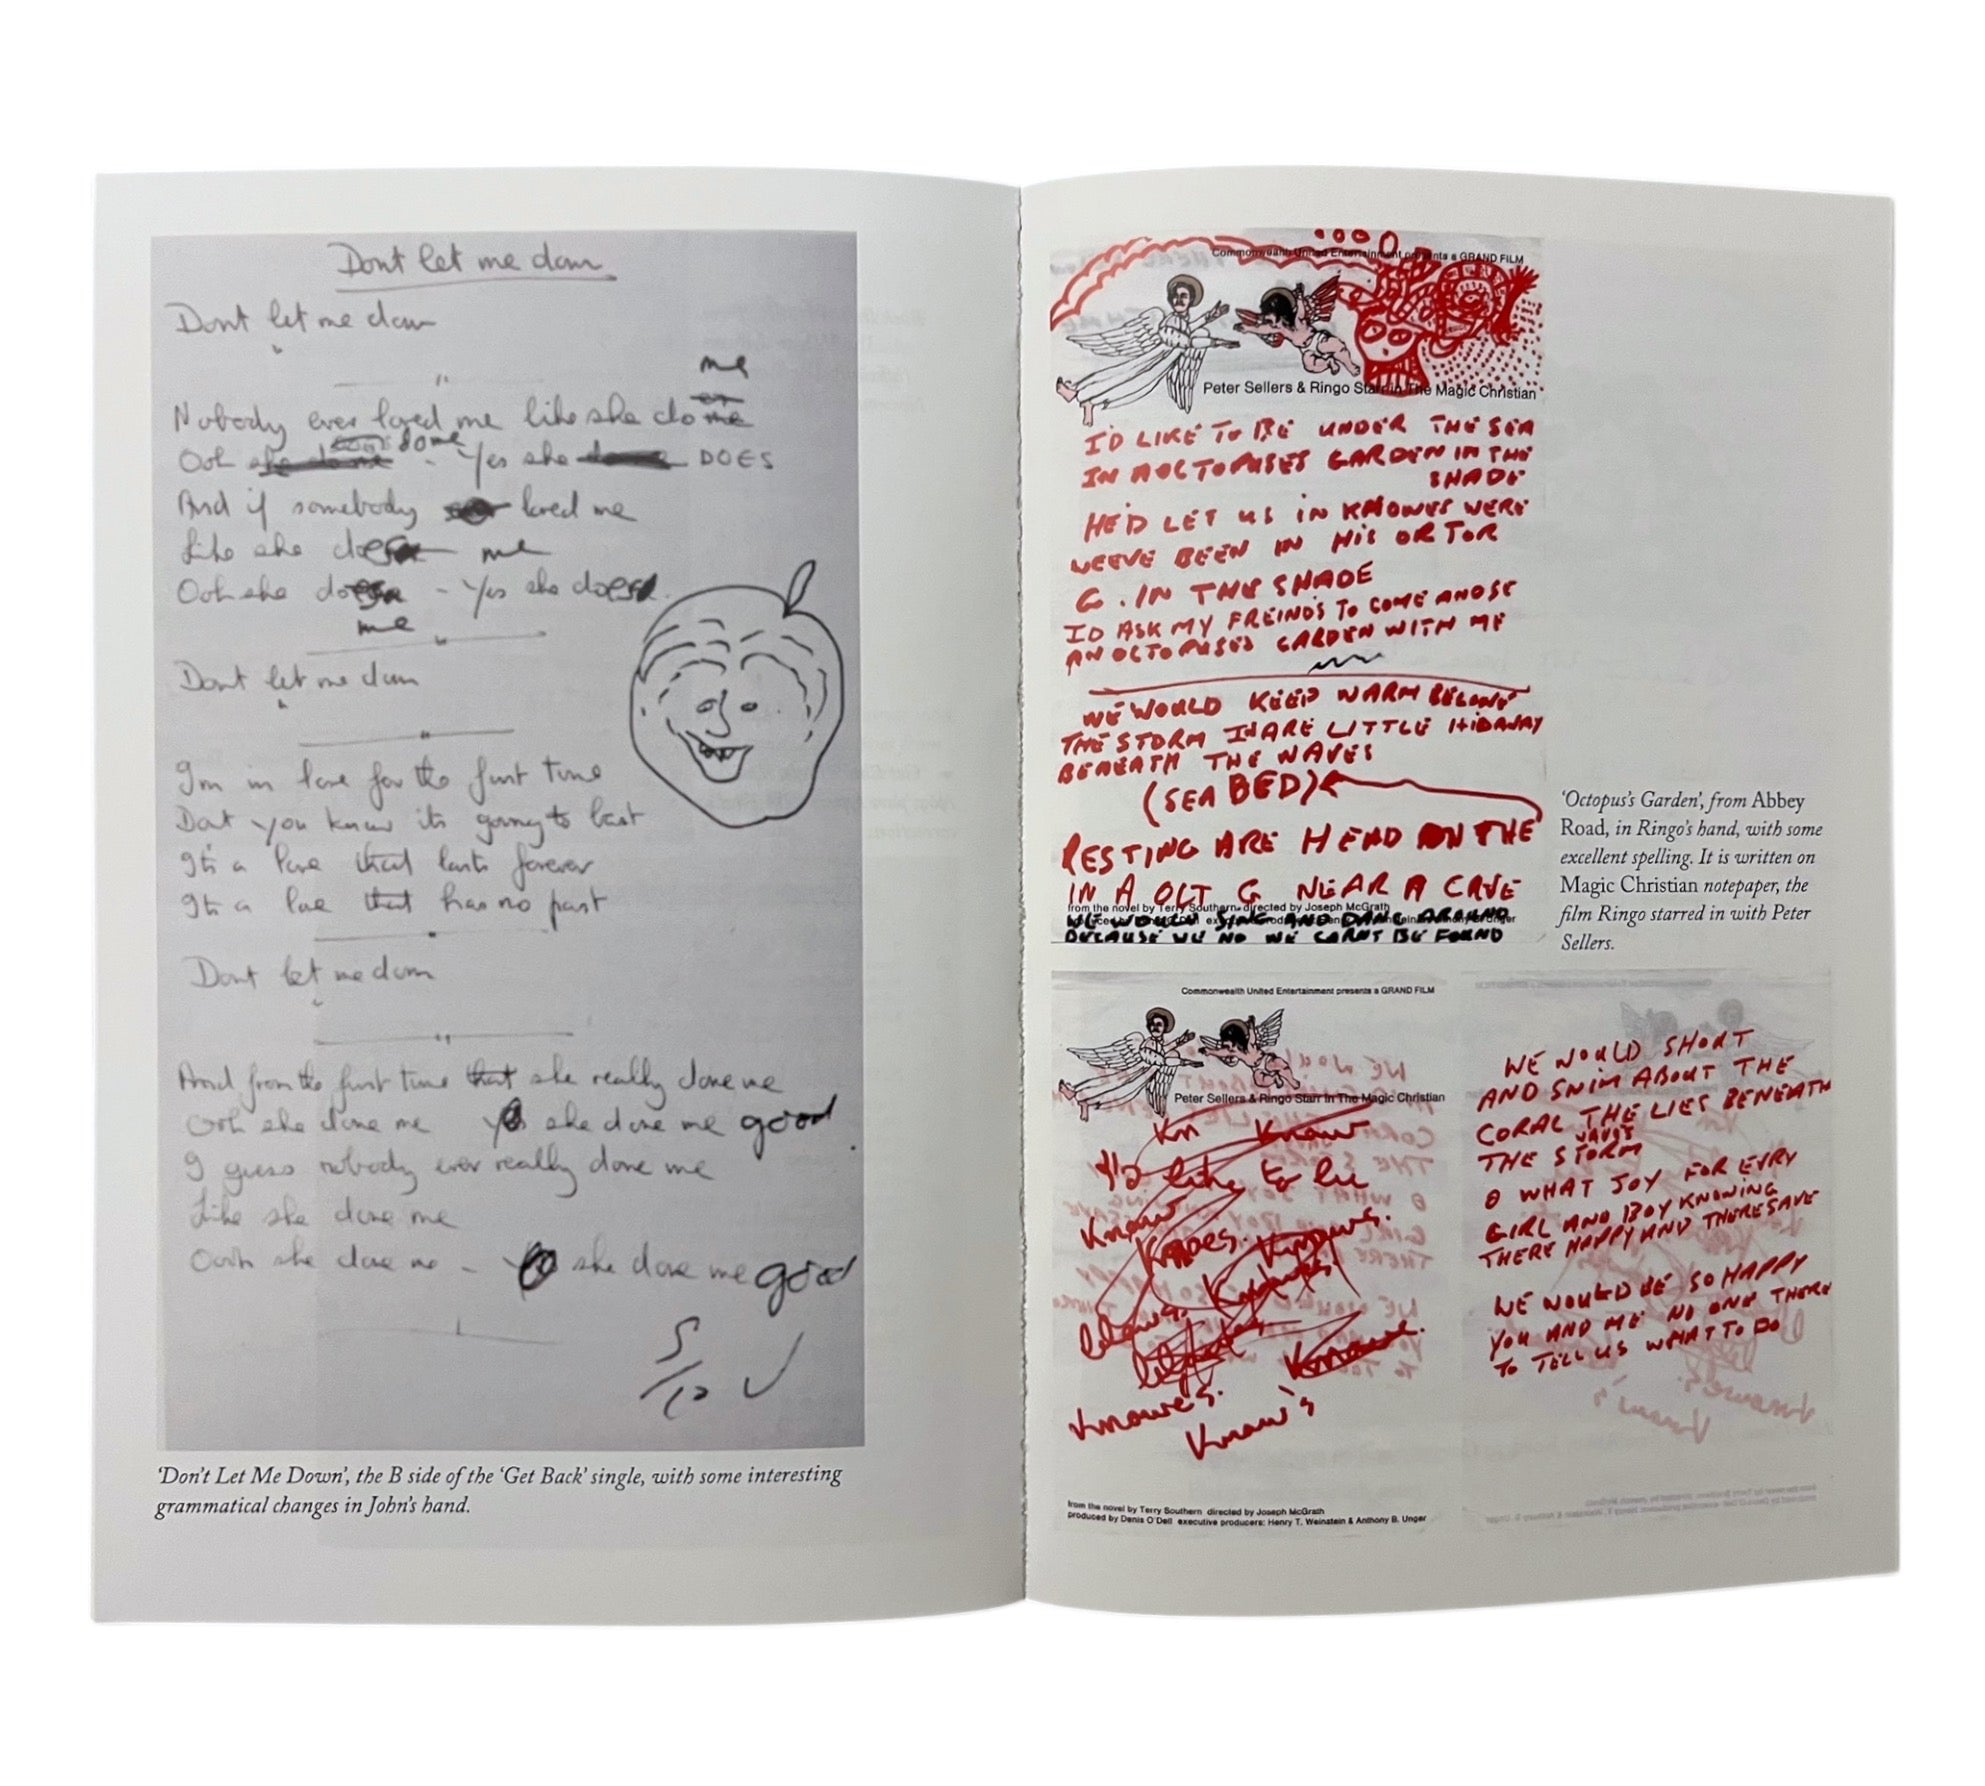 Dont let me down
Dont let me down
"
me
Nobody ever loved me like she do me
done
Ooh she done me - Yes she done DOES
And if somebody loved me
Like she does me
Ooh she does - Yes she does
me
"
Dont let me down
"
"
I'm in love for the first time
Dont you know its going to last
It's a love that lasts forever
It's a love that has no past
"
Dont let me down
"
"
And from the first time that she really done me
Ooh she done me Yes she done me good
I guess nobody ever really done me
Like she done me
Ooh she done me - Yes she done me good
5/10 ✓
'Don't Let Me Down', the B side of the 'Get Back' single, with some interesting
grammatical changes in John's hand.
Commonwealth United Entertainment presents a GRAND FILM
Peter Sellers & Ringo Starr in The Magic Christian
I'D LIKE TO BE UNDER THE SEA
IN A OCTOPUSES GARDEN IN THE
SHADE
HE'D LET US IN KNOWES WERE
WEEVE BEEN IN HIS OR TOR
G. IN THE SHADE
ID ASK MY FREINDS TO COME AND SE
AN OCTOPUSES GARDEN WITH ME
WE WOULD KEEP WARM BELOWE
THE STORM IN ARE LITTLE HIDAWAY
BENEATH THE WAVES
(SEA BED)
RESTING ARE HEAD ON THE
IN A OCT G NEAR A CAVE
from the novel by Terry Southern directed by Joseph McGrath
WE WOULD SING AND DANC AROUND
BECAUSE WE NO WE CARNT BE FOUND
'Octopus's Garden', from Abbey
Road, in Ringo's hand, with some
excellent spelling. It is written on
Magic Christian notepaper, the
film Ringo starred in with Peter
Sellers.
Commonwealth United Entertainment presents a GRAND FILM
Peter Sellers & Ringo Starr in The Magic Christian
Kn Know
I'd like to be
Know
Knoes. Knows.
Knowes.
Know's
from the novel by Terry Southern directed by Joseph McGrath
produced by Denis O'Dell executive producers: Henry T. Weinstein & Anthony B. Unger
WE WOULD SHOUT
AND SWIM ABOUT THE
CORAL THE LIES BENEATH
WAVES
THE STORM
O WHAT JOY FOR EVRY
GIRL AND BOY KNOWING
THERE HAPPY AND THERE SAVE
WE WOULD BE SO HAPPY
YOU AND ME NO ONE THERE
TO TELL US WHAT TO DO